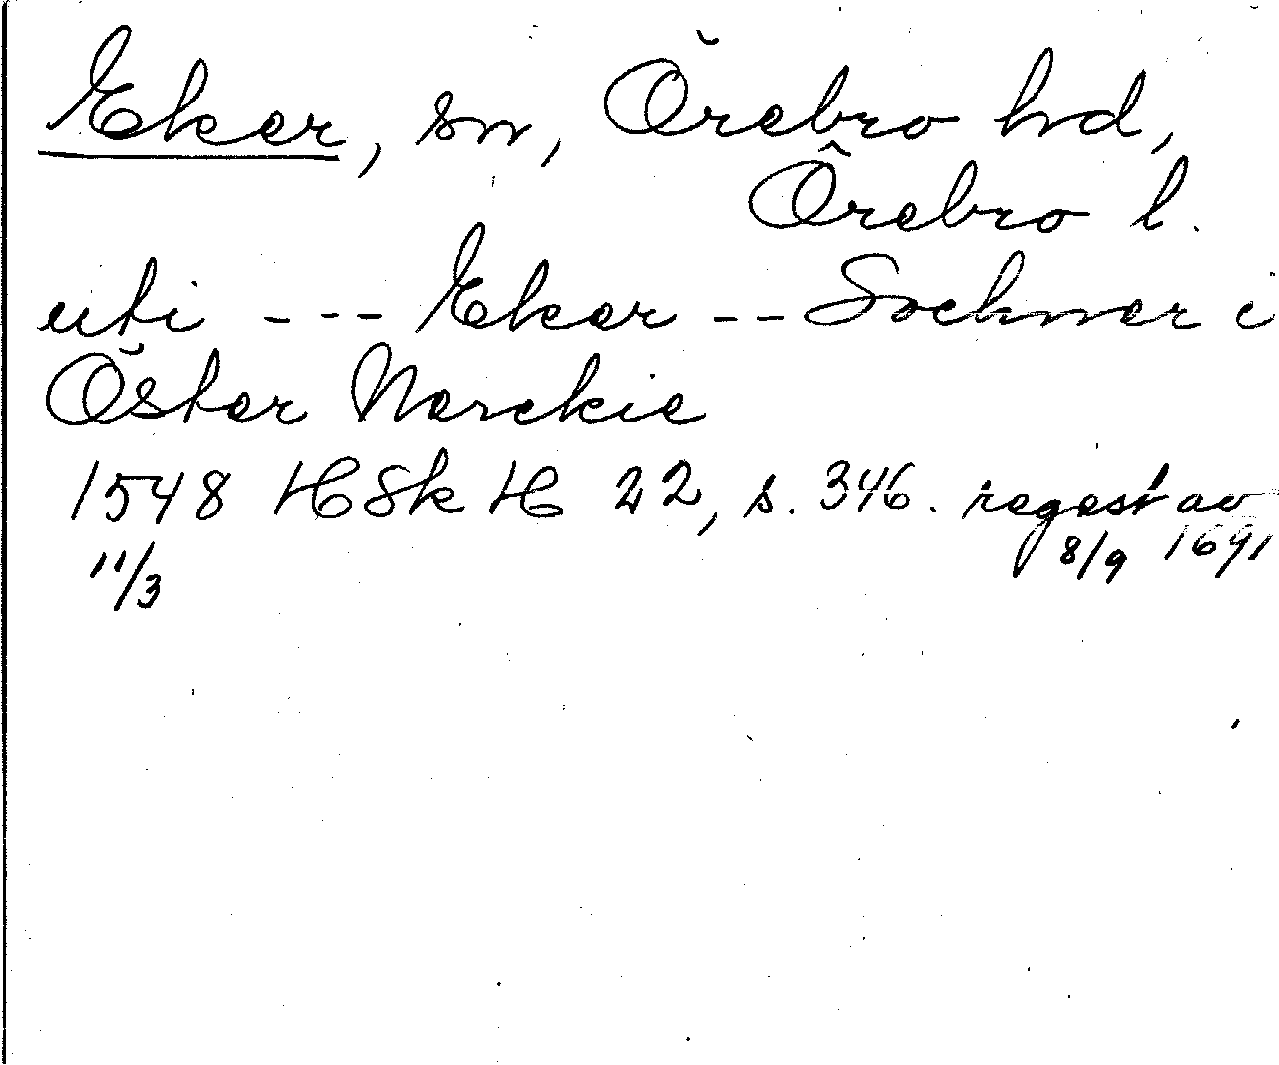 Eker, sn, Örebro hd,
Örebro l.
uti --- Eker -- Sochner i
Öster Nerckie
1548 HSkH 22, s. 346. regest av
11/3 8/9 1691